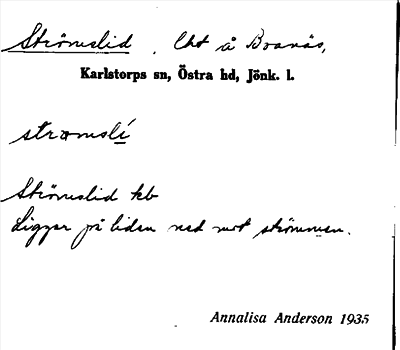 Strömslid . Lht å Boanäs,
Karlstorps sn, Östra hd, Jönk. l.
strömslí
Strömslid kb
Ligger på liden ned mot strömmen.
Annalisa Anderson 1935